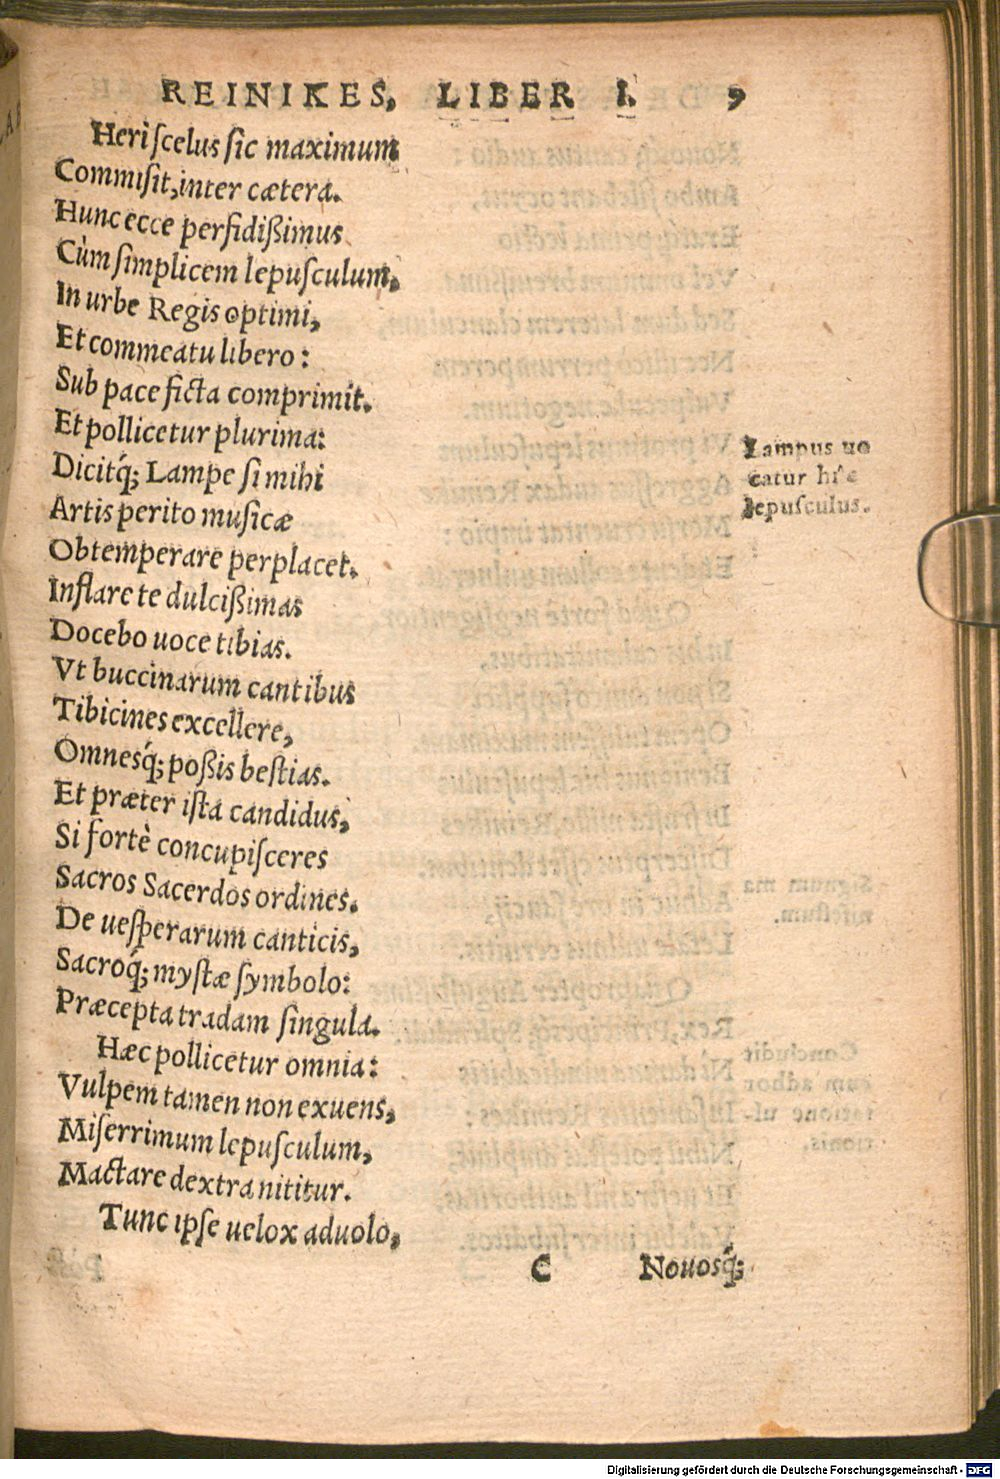 REINIKES, LIBER I. 9
Heri ſcelus ſic maximum
Commiſit, inter cætera.
Hunc ecce perfidißimus
Cùm ſimplicem lepuſculum,
In urbe Regis optimi,
Et commeatu libero:
Sub pace ficta comprimit.
Et pollicetur plurima:
Dicitq́; Lampe ſi mihi
Artis perito muſicæ
Obtemperare perplacet.
Inflare te dulcißimas
Docebo uoce tibias.
Vt buccinarum cantibus
Tibicines excellere,
Omnesq́; poßis beſtias.
Et præter iſta candidus,
Si fortè concupiſceres
Sacros Sacerdos ordines.
De ueſperarum canticis,
Sacroq́; myſtæ ſymbolo:
Præcepta tradam ſingula.
Hæc pollicetur omnia:
Vulpem tamen non exuens,
Miſerrimum lepuſculum,
Mactare dextra nititur.
Tunc ipſe uelox aduolo,
C Nouosq́;
Lampus uo
catur hic
lepuſculus.
Digitalisierung gefördert durch die Deutsche Forschungsgemeinschaft - DFG